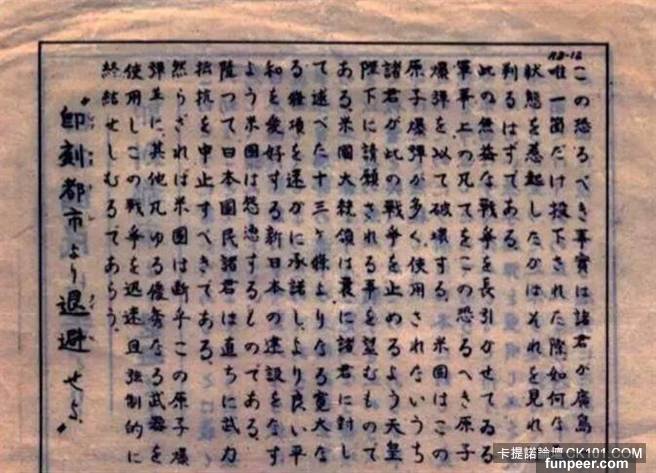 AB-12
この恐るべき事實は諸君が廣島
唯一箇だけ投下された際如何な
状態を惹起したかはそれを見れ
判るはずである
此の無益な戦争を長引かせてゐる
軍事上の凡てをこの恐るべき原子
爆弾を以て破壊する 米國はこの
原子爆弾が多く使用されないうち
諸君が此の戦争を止めるよう天皇
陛下に請願される事を望むもので
ある 米國大統領は曩に諸君に対し
て述べた十三ヶ條よりなる寛大な
る條項を速かに承諾しより良い平
和を愛好する新日本の建設をなす
よう米國は慫慂するものである
つて日本國民諸君は直ちに武力
抵抗を中止すべきである
然らざれば米國は断乎この原子爆
弾並に其他凡ゆる優秀なる武器を
使用しこの戦争を迅速且強制的に
終結せしむるであらう
"即刻都市より退避せよ"
卡提諾論壇CK101.COM
funpeer.com